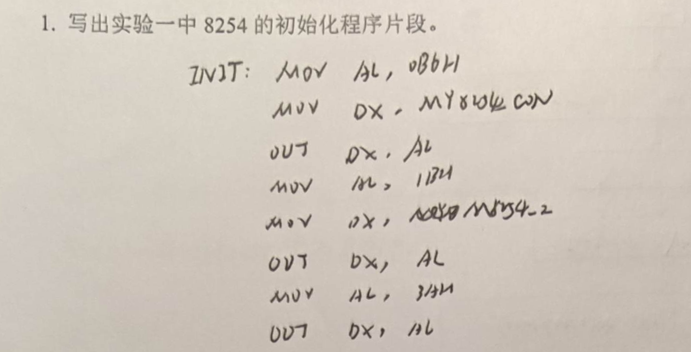 1. 写出实验一中 8254 的初始化程序片段。
INIT: MOV AL, 0B6H
MOV DX, MY8254 CON
OUT DX, AL
MOV AL,
MOV DX, M8254-2
OUT DX, AL
MOV AL,
OUT DX, AL